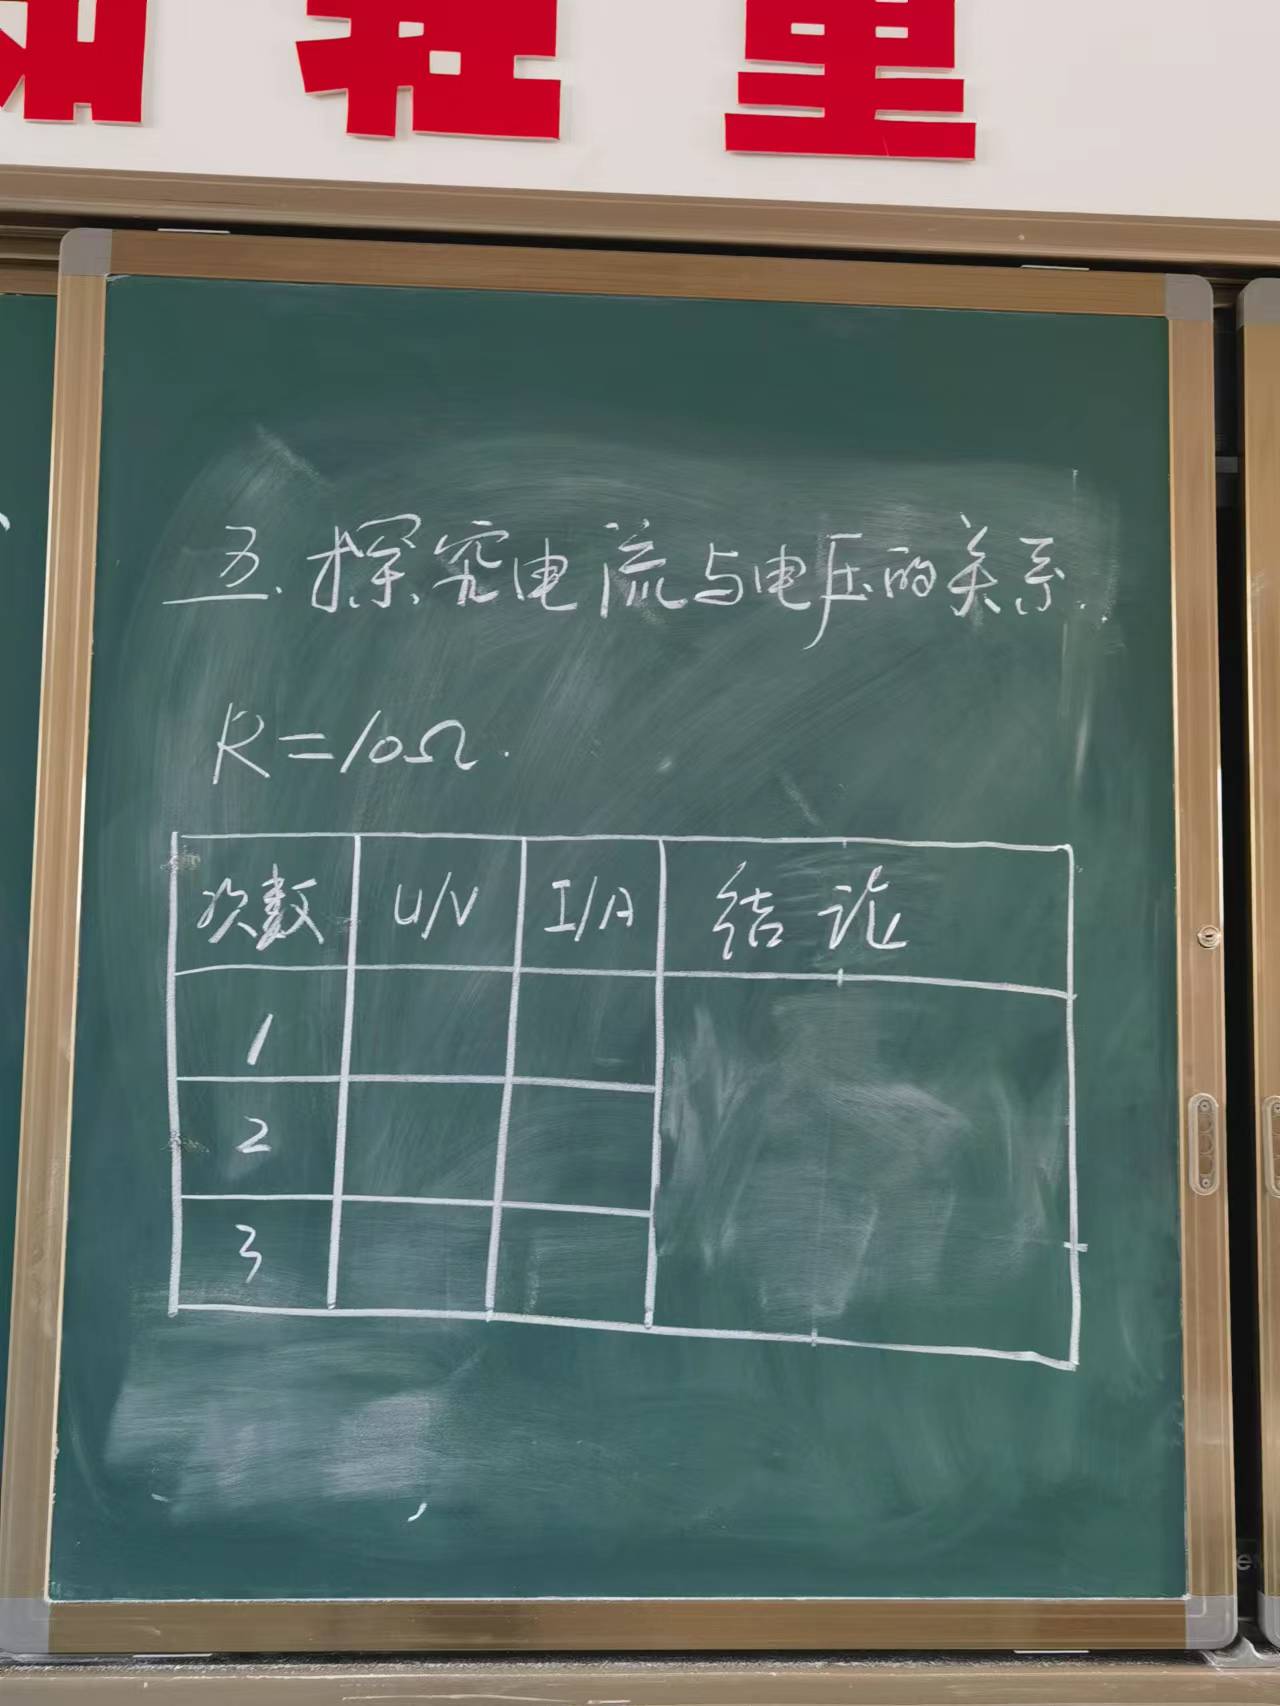 五.探究电流与电压的关系.
R=10Ω.
次数 U/V I/A 结论
1
2
3